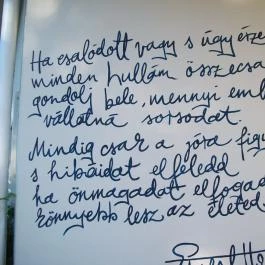 Ha csalódott vagy s úgy érze
minden hullám összecsa
gondolj bele, mennyi emb
vállalná sorsodat.
Mindig csak a jóra figy
s hibáidat elfeledd
ha önmagadat elfogad
könnyebb lesz az életed.